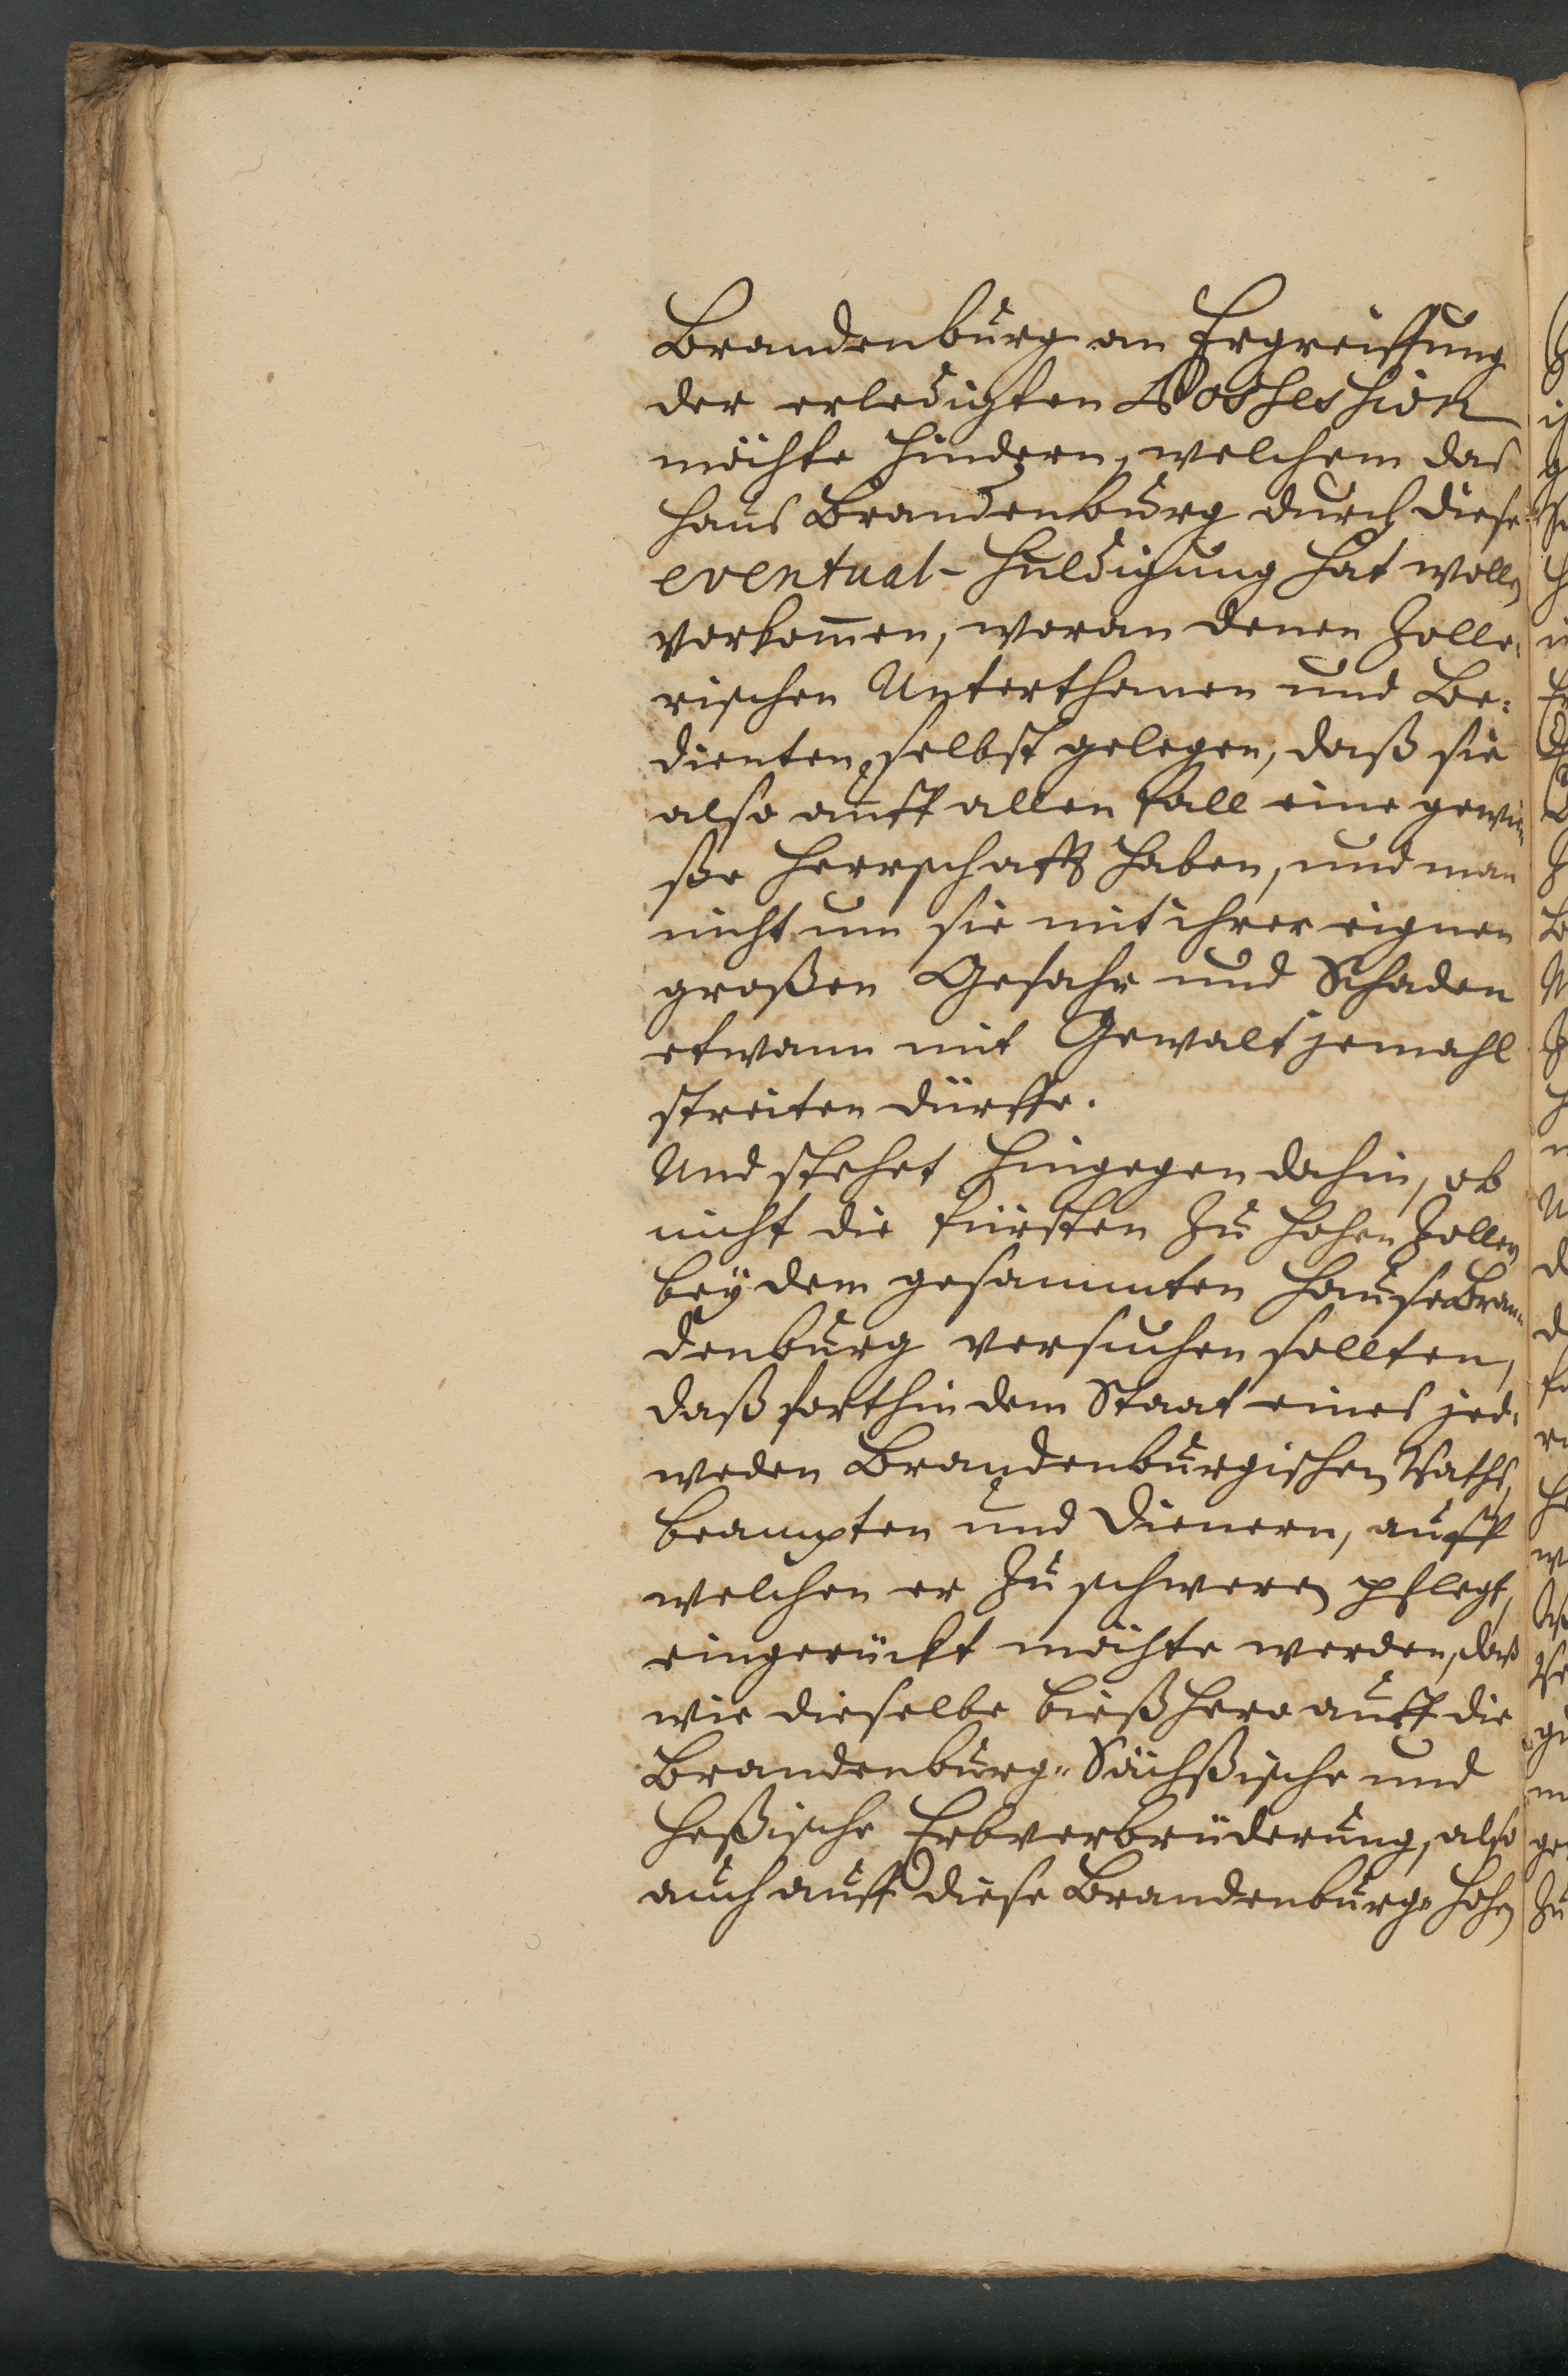 Brandenburg an Ergreiffung
der erledigten Possession
möchte hindern, welchem das
Haus Brandenburg durch diese
eventual-Huldigung hat wollen
vorkom̄en, woran denen Zolle-
rischen Unterthanen und Be-
dienten selbst gelegen, daß sie
also auff allen fall eine gewi-
ße Herrschafft haben, und man
nicht um sie mit ihrer eignen
großen Gefahr und Schaden
etwann mit Gewalt jemahl
streiten dürffe.
Und stehet hingegen dahin, ob
nicht die Fürsten zu Hohen Zollern
bey dem gesammten Hause Bran-
denburg versuchen sollten,
daß forthin dem Staat eines jed-
weden Brandenburgischen Raths,
beampten und Dienern, auff
welchen er zu schweren pflegt,
eingerückt möchte werden, daß
wie dieselbe bießhero auff die
Brandenburg-Sächßische und
Heßische Erbverbrüderung, also
auch auff diese Brandenburg-Hohen